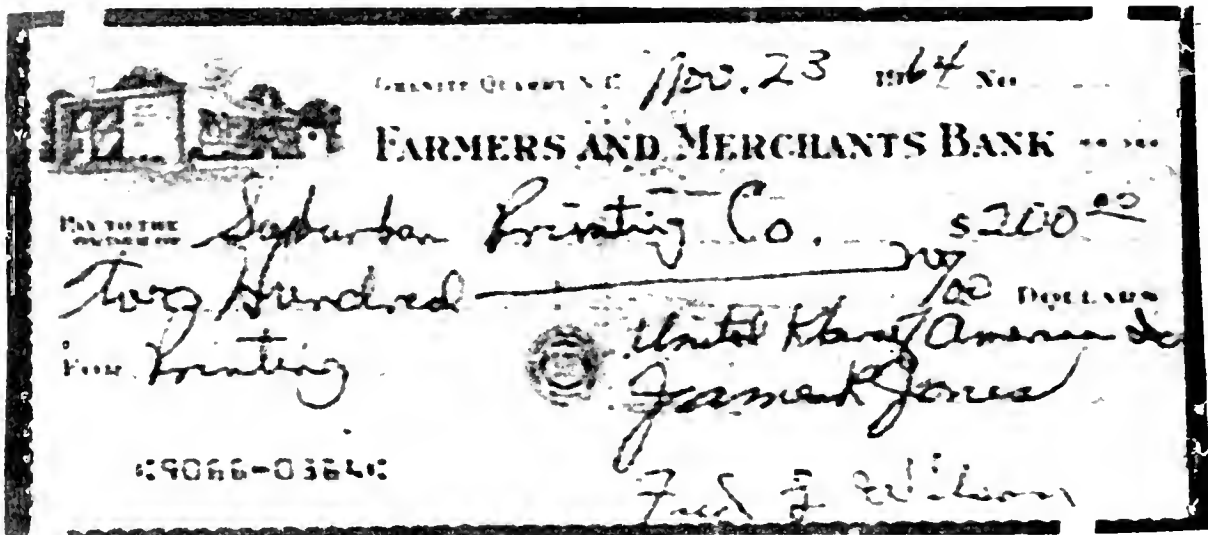 GRANITE QUARRY N.C. Nov. 23 1964 No
FARMERS AND MERCHANTS BANK
PAY TO THE ORDER OF Suburban Printing Co. $200 00
Two Hundred no/00 DOLLARS
United Klans of America Inc
FOR Printing
James R Jones
Fred L Wilson